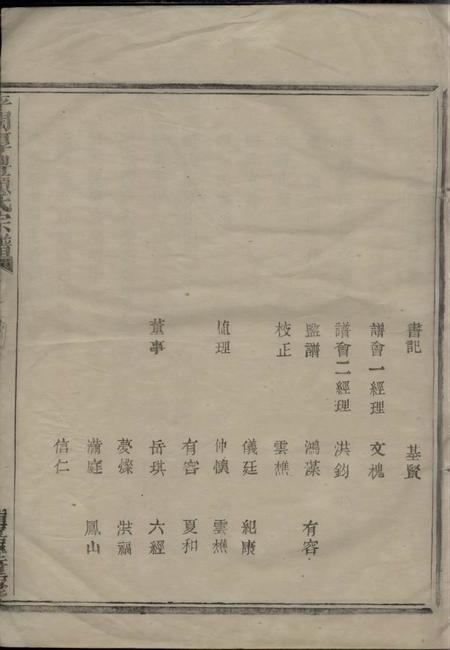 書記 基賢
譜會一經理 文槐
譜會二經理 洪鈞
監譜 鴻藻 有容
校正 雲樵
儀廷 紀康
理 仲慎 雲樵
有容 夏和
董事 岳琪 六經
夢燦 洪福
滿庭 鳳山
信仁
氏宗譜